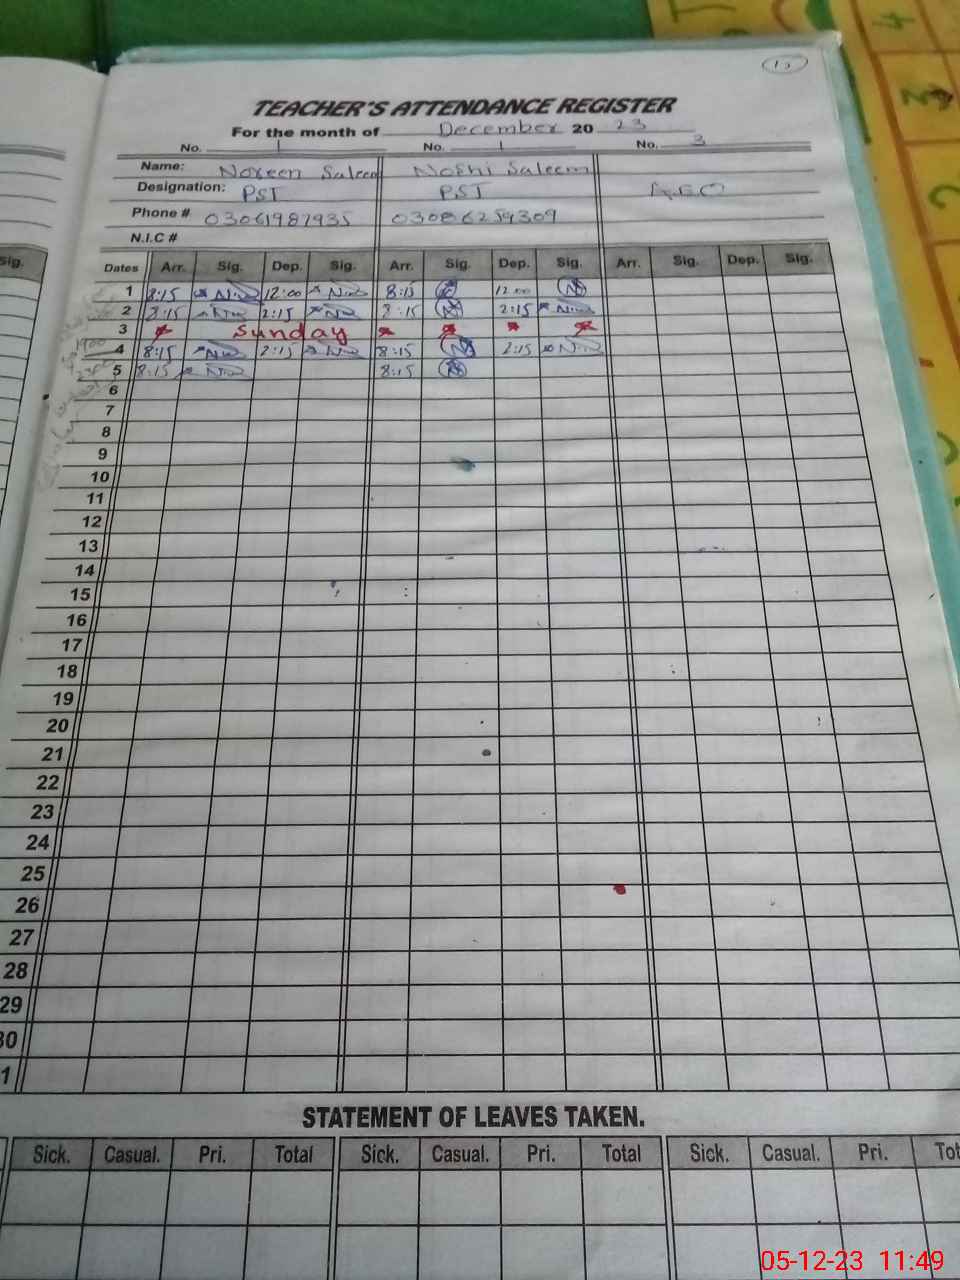 13
TEACHER'S ATTENDANCE REGISTER
For the month of December 20 23
No. 1 No. 1 No. 3
Name: Noreen Saleem Noshi Saleem
Designation: PST PST AEO
Phone # 03061987935 03086259309
N.I.C #
Sig.
Dates Arr. Sig. Dep. Sig. Arr. Sig. Dep. Sig. Arr. Sig. Dep. Sig.
1 8:15 12:00 8:15 12:00
2 8:15 2:15 8:15 2:15
3 Sunday
4 8:15 2:15 8:15 2:15
5 8:15 8:15
6
7
8
9
10
11
12
13
14
15
16
17
18
19
20
21
22
23
24
25
26
27
28
29
30
1
STATEMENT OF LEAVES TAKEN.
Sick. Casual. Pri. Total Sick. Casual. Pri. Total Sick. Casual. Pri. Tot
05-12-23 11:49